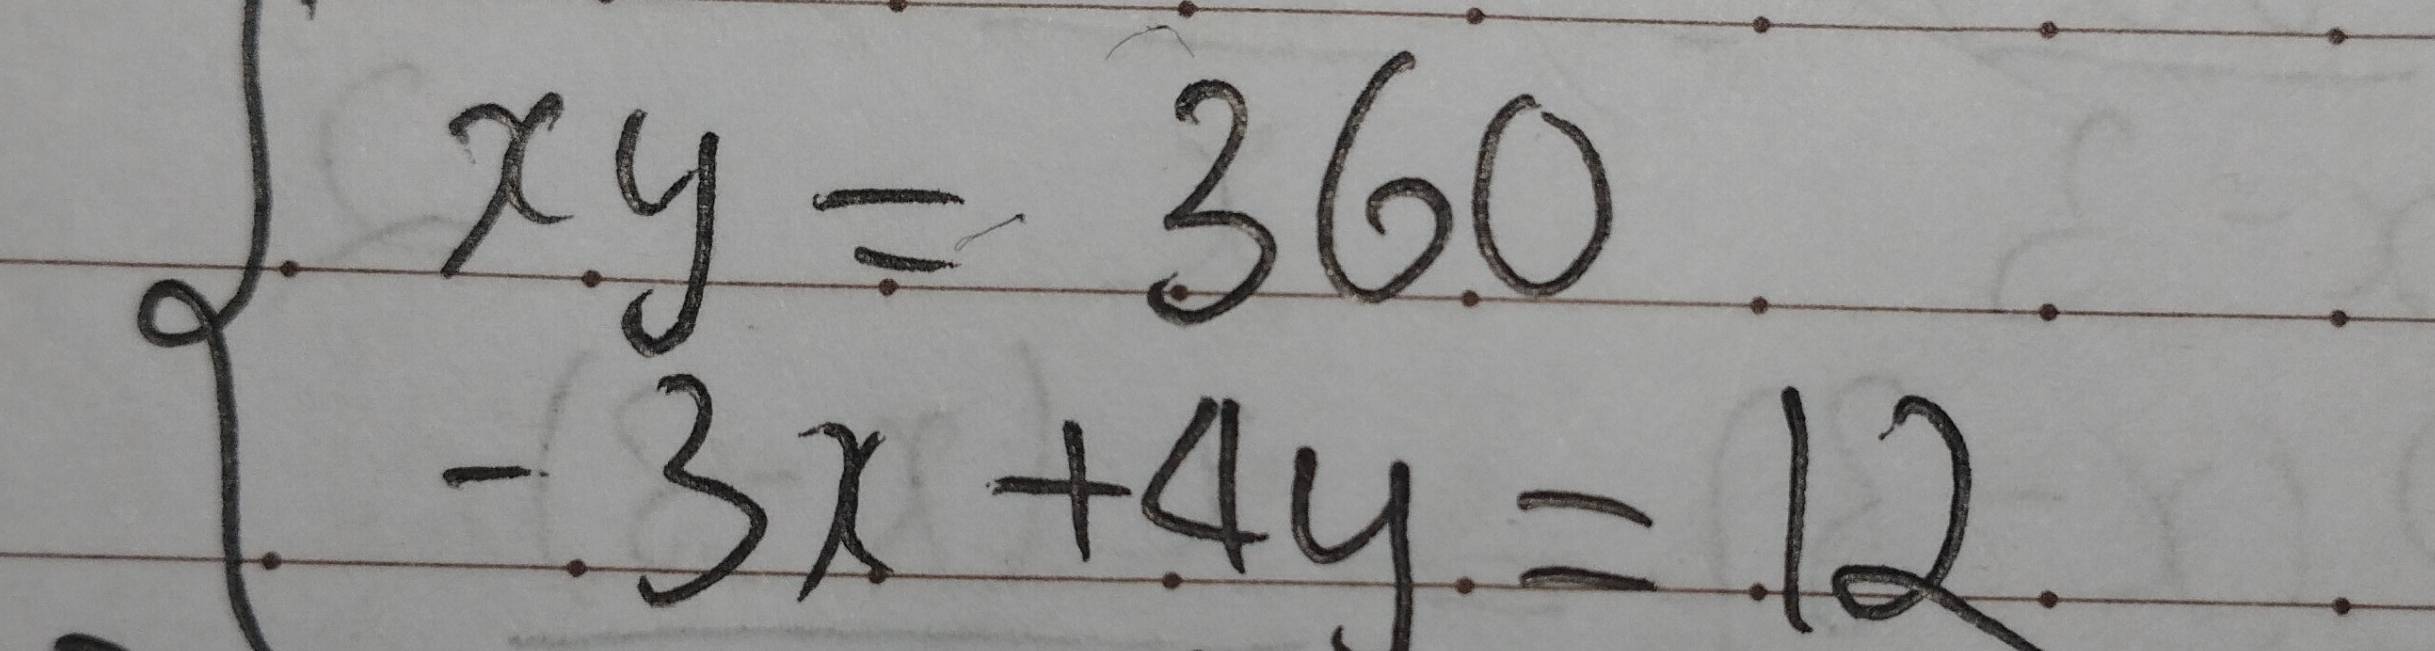 xy = 360
-3x + 4y = 12